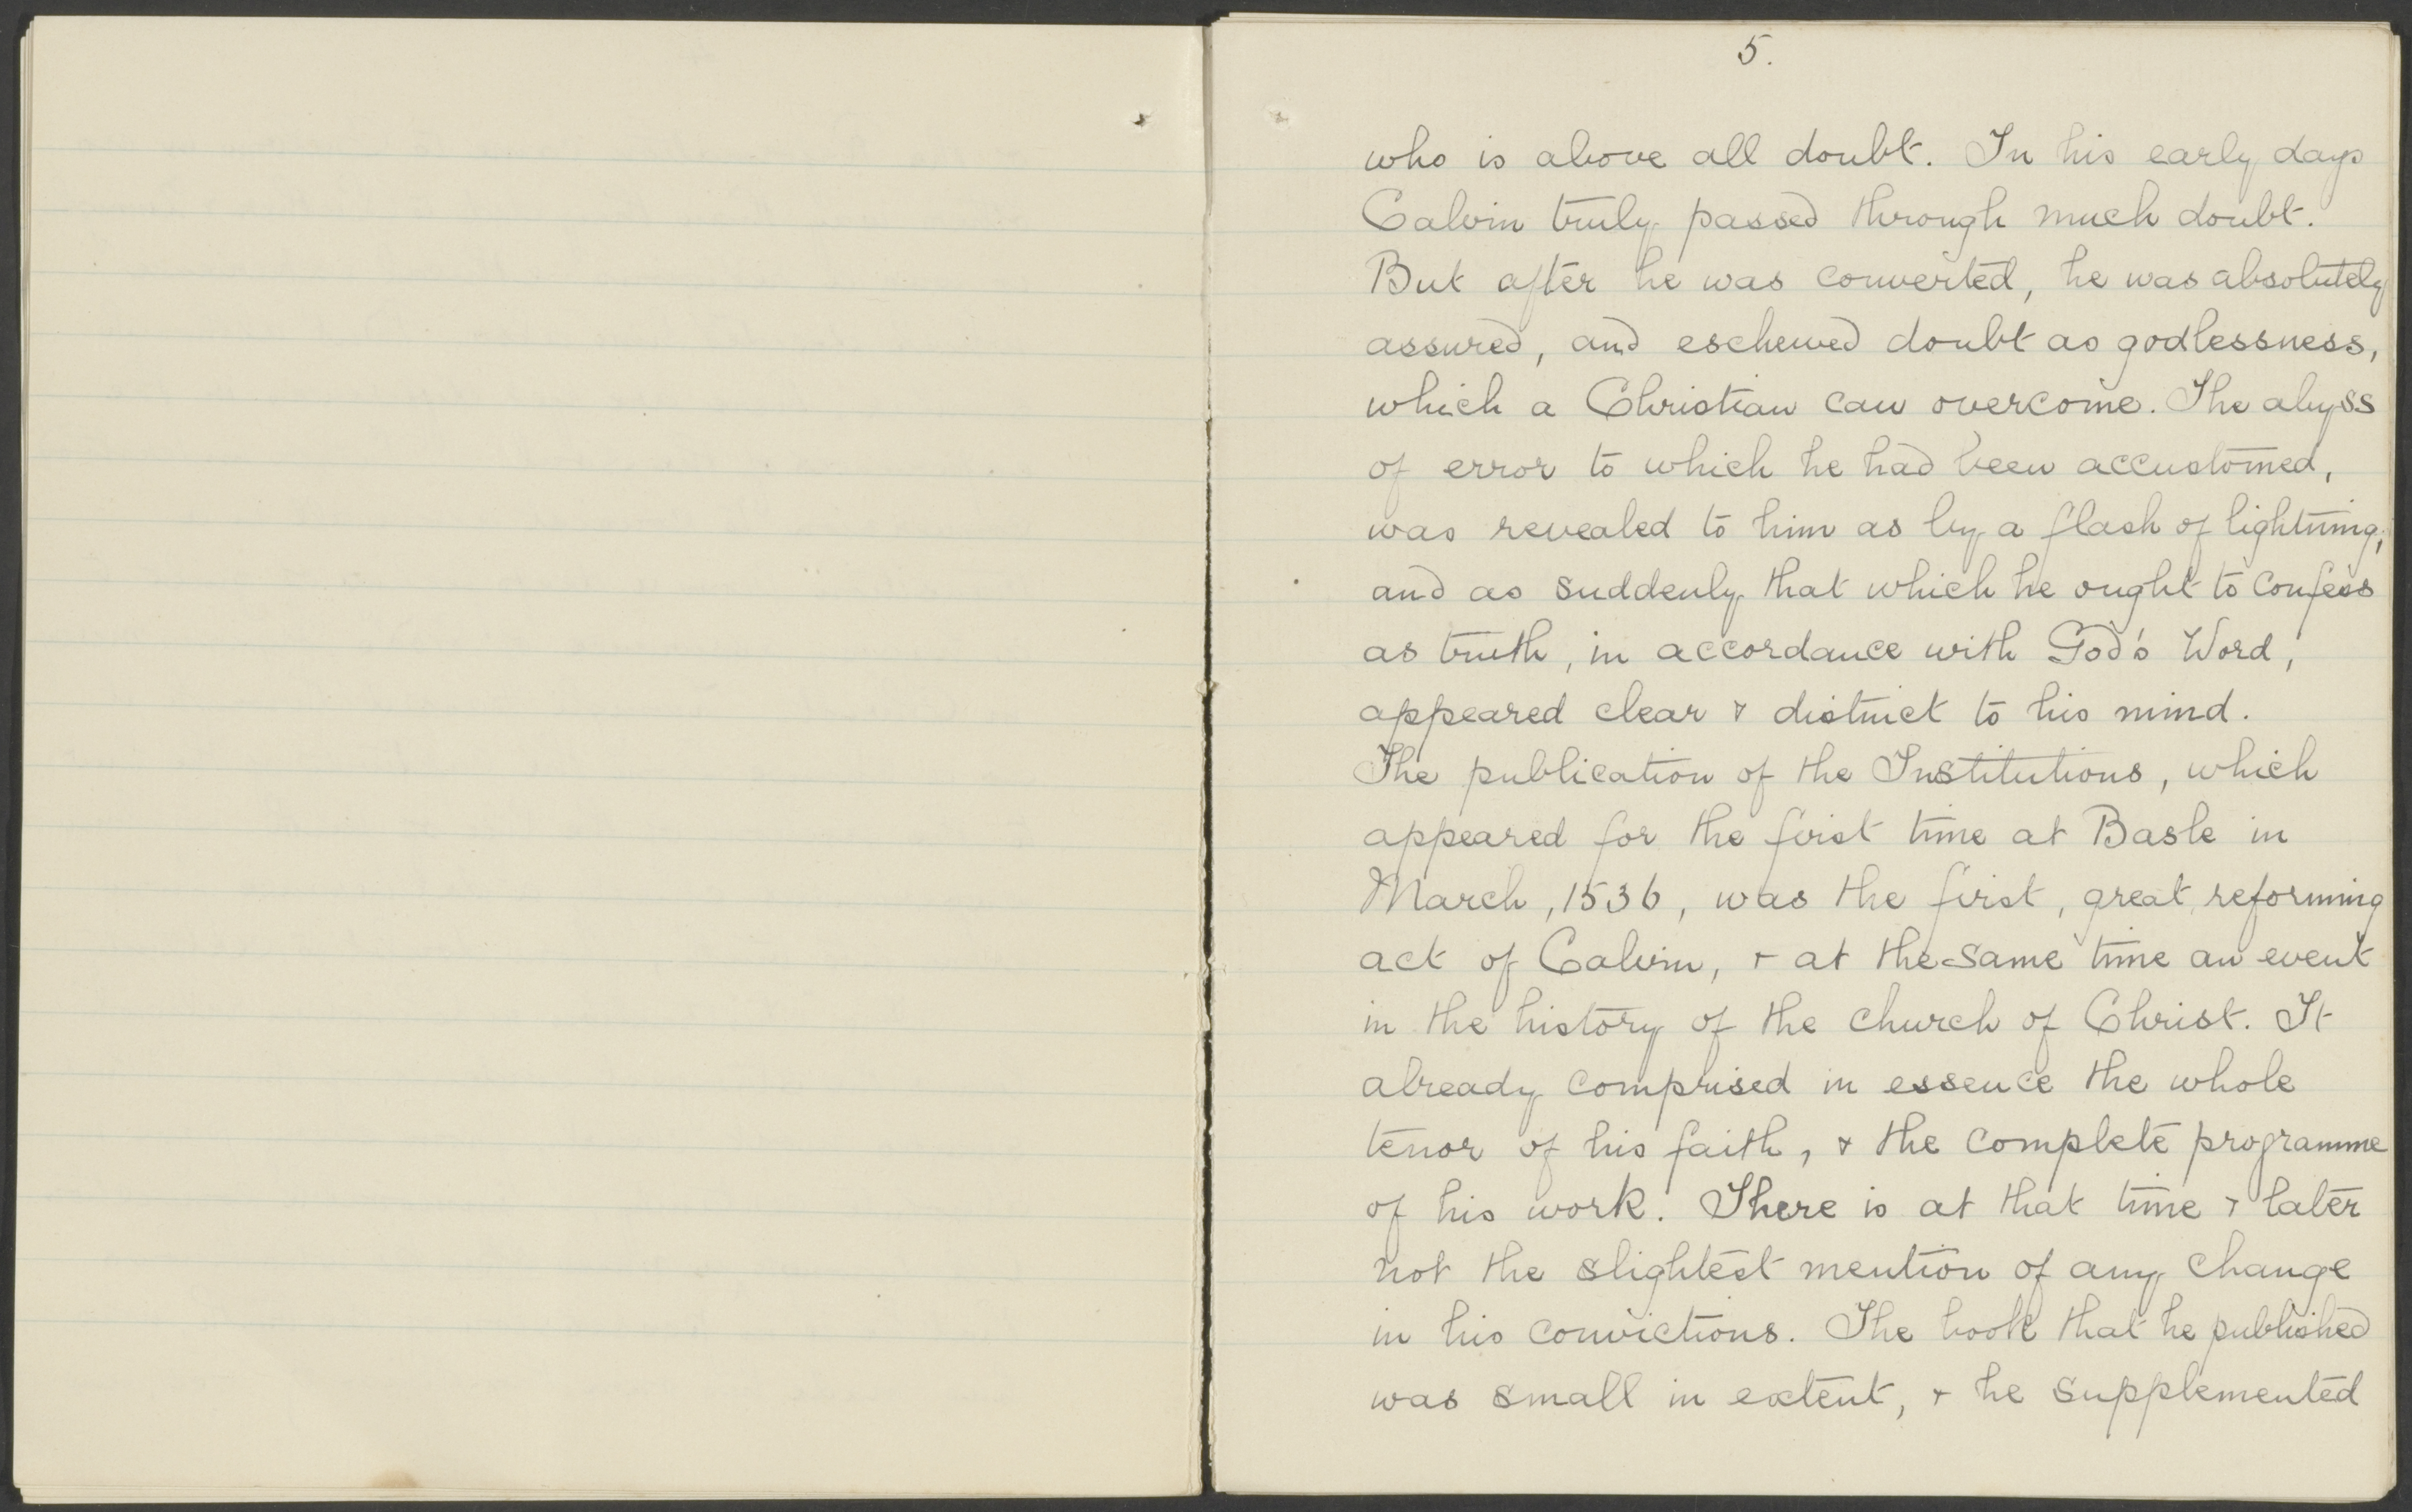 5.
who is above all doubt. In his early days
Calvin truly passed through much doubt.
But after he was converted, he was absolutely
assured, and eschewed doubt as godlessness,
which a Christian can overcome. The abyss
of error to which he had been accustomed,
was revealed to him as by a flash of lightning,
and as suddenly that which he ought to confess
as truth, in accordance with God's Word,
appeared clear & distinct to his mind.
The publication of the Institutions, which
appeared for the first time at Basle in
March, 1536, was the first, great, reforming
act of Calvin, & at the same time an event
in the history of the church of Christ. It
already comprised in essence the whole
tenor of his faith, & the complete programme
of his work. There is at that time & later
not the slightest mention of any change
in his convictions. The book that he published
was small in extent, & he supplemented